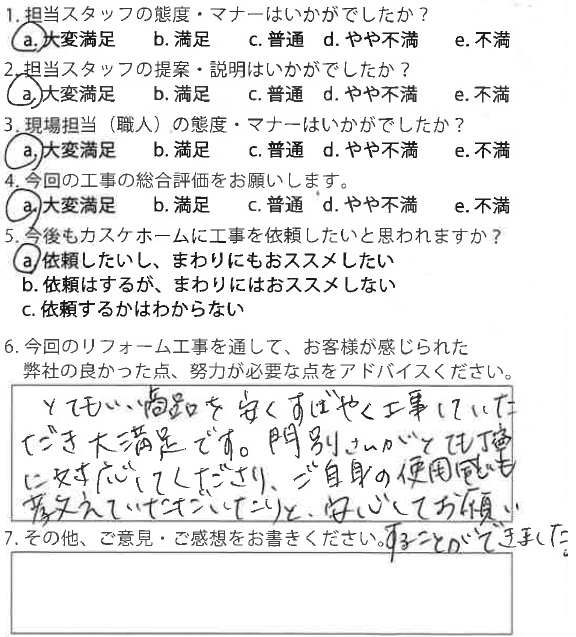 1. 担当スタッフの態度・マナーはいかがでしたか？
a. 大変満足 b. 満足 c. 普通 d. やや不満 e. 不満
2. 担当スタッフの提案・説明はいかがでしたか？
a. 大変満足 b. 満足 c. 普通 d. やや不満 e. 不満
3. 現場担当（職人）の態度・マナーはいかがでしたか？
a. 大変満足 b. 満足 c. 普通 d. やや不満 e. 不満
4. 今回の工事の総合評価をお願いします。
a. 大変満足 b. 満足 c. 普通 d. やや不満 e. 不満
5. 今後もカスケホームに工事を依頼したいと思われますか？
a. 依頼したいし、まわりにもおススメしたい
b. 依頼はするが、まわりにはおススメしない
c. 依頼するかはわからない
6. 今回のリフォーム工事を通して、お客様が感じられた
弊社の良かった点、努力が必要な点をアドバイスください。
とてもいい商品を安くすばやく工事していた
だき大満足です。門別さんがとても丁寧
に対応してくださり、ご自身の使用感も
教えていただいたりと、安心してお願い
7. その他、ご意見・ご感想をお書きください。
することができました。